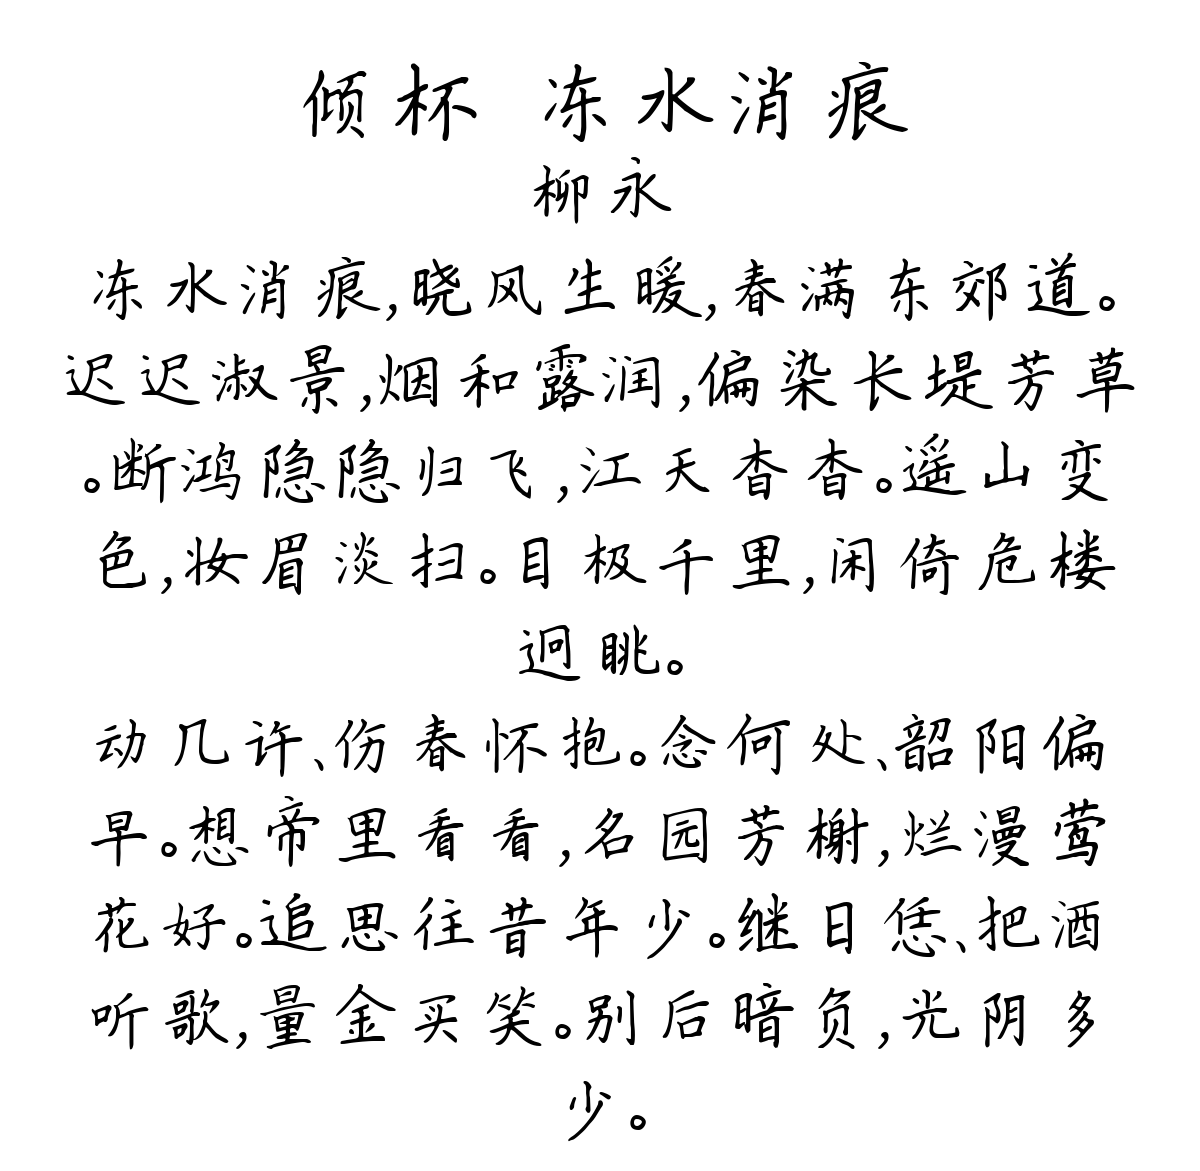 倾杯 冻水消痕
柳永
冻水消痕,晓风生暖,春满东郊道。
迟迟淑景,烟和露润,偏染长堤芳草
。断鸿隐隐归飞,江天杳杳。遥山变
色,妆眉淡扫。目极千里,闲倚危楼
迥眺。
动几许、伤春怀抱。念何处、韶阳偏
早。想帝里看看,名园芳榭,烂漫莺
花好。追思往昔年少。继日恁、把酒
听歌,量金买笑。别后暗负,光阴多
少。